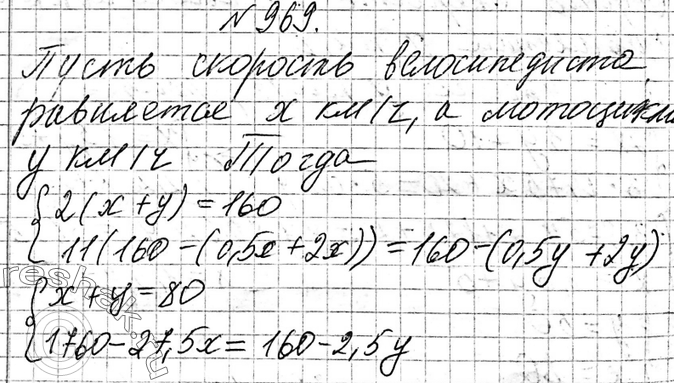 №969.
Пусть скорость велосипедиста
равняется x км/ч, а мотоцикл
y км/ч Тогда
{ 2(x+y)=160
11(160-(0,5x+2x))=160-(0,5y+2y)
{ x+y=80
1760-27,5x=160-2,5y